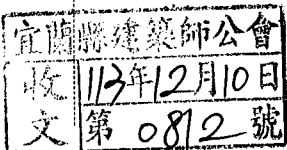 宜蘭縣建築師公會
收文 113年12月10日
第0812號